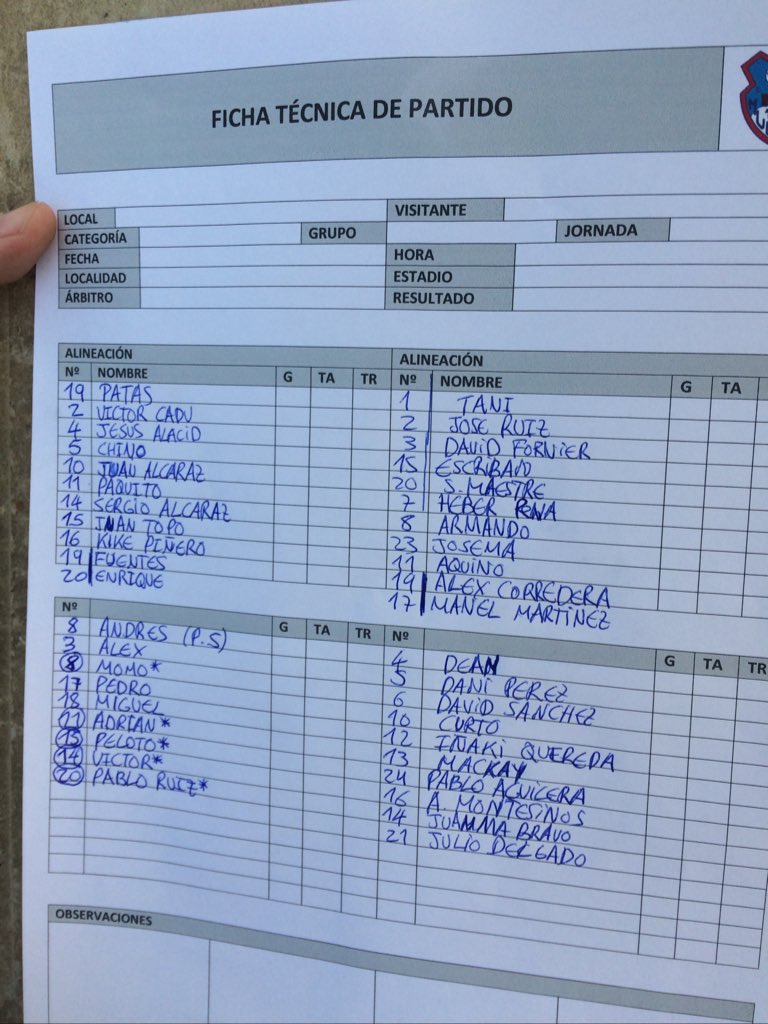 FICHA TÉCNICA DE PARTIDO
LOCAL
VISITANTE
CATEGORÍA
GRUPO
JORNADA
FECHA
HORA
LOCALIDAD
ESTADIO
ÁRBITRO
RESULTADO
ALINEACIÓN
Nº NOMBRE G TA TR
19 PATAS
2 VICTOR CADU
4 JESUS ALACID
5 CHINO
10 JUAN ALCARAZ
11 PAQUITO
14 SERGIO ALCARAZ
15 JUAN TOPO
16 KIKE PIÑERO
19 FUENTES
20 ENRIQUE
Nº G TA TR
8 ANDRES (P.S)
3 ALEX
8 MOMO*
17 PEDRO
18 MIGUEL
11 ADRIAN*
13 PELOTO*
14 VICTOR*
20 PABLO RUIZ*
ALINEACIÓN
Nº NOMBRE G TA
1 TANI
2 JOSE RUIZ
3 DAVID FORNIER
15 ESCRIBANO
20 S. MAESTRE
7 HEBER PENA
8 ARMANDO
23 JOSEMA
11 AQUINO
19 ALEX CORREDERA
17 MANEL MARTINEZ
Nº G TA TR
4 DEAN
5 DANI PEREZ
6 DAVID SANCHEZ
10 CURTO
12 IÑAKI QUEREDA
13 MACKAY
24 PABLO AGUILERA
16 A. MONTESINOS
14 JUANMA BRAVO
21 JULIO DELGADO
OBSERVACIONES